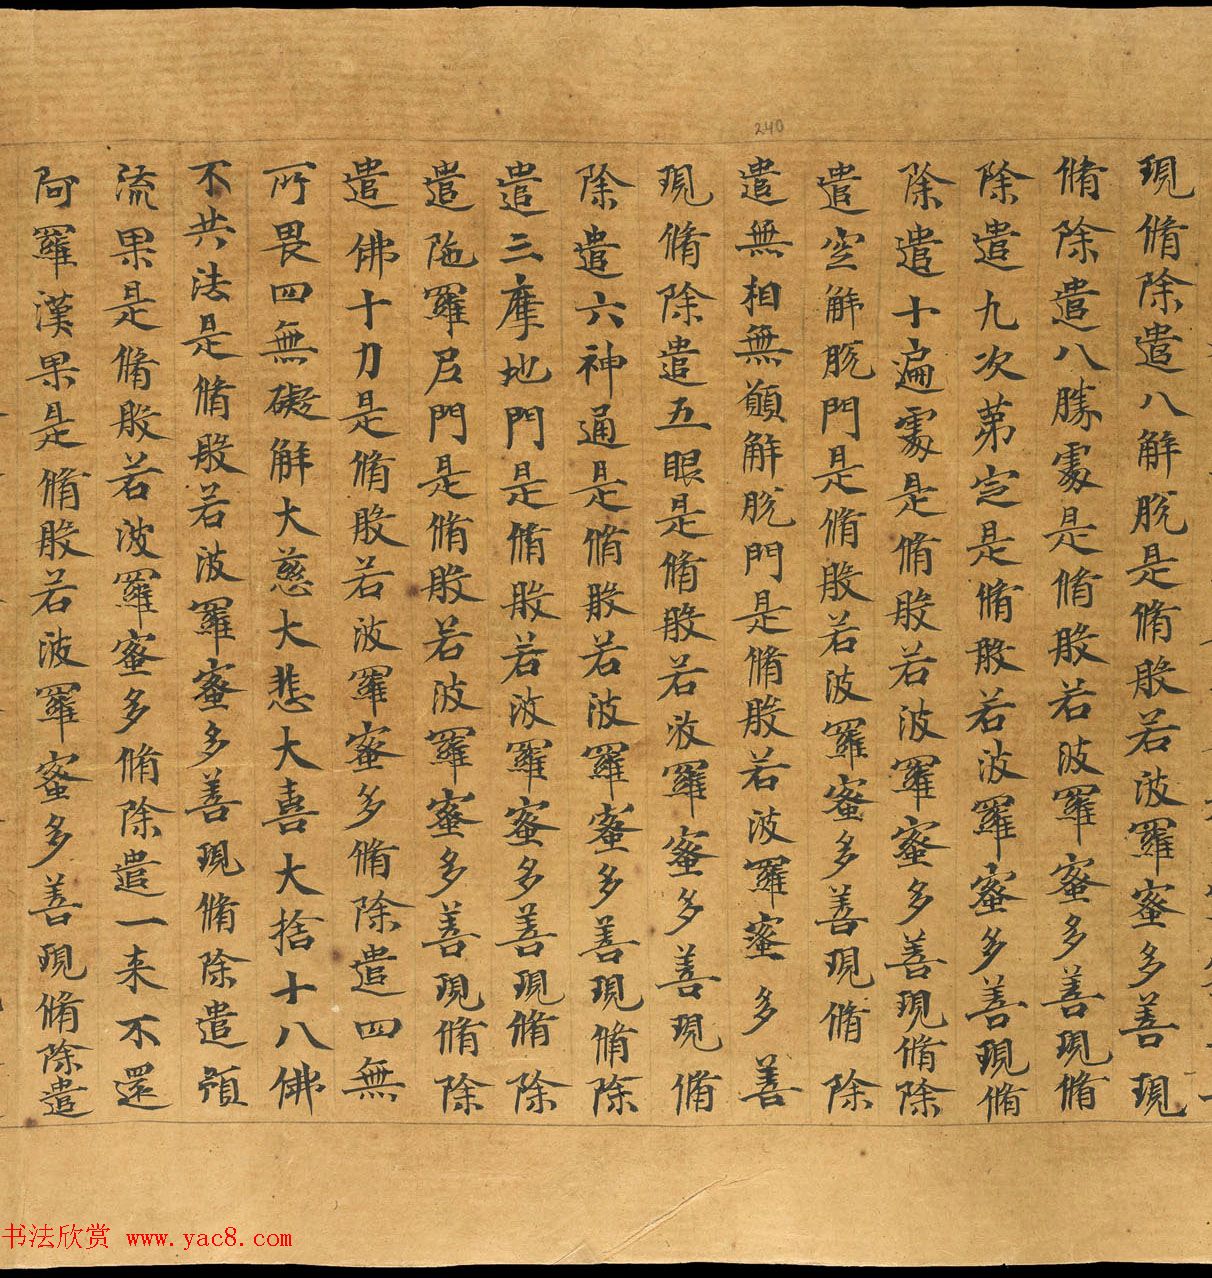 240
現脩除遣八解脫是脩般若波羅蜜多善現
脩除遣八勝處是脩般若波羅蜜多善現脩
除遣九次第定是脩般若波羅蜜多善現脩
除遣十遍處是脩般若波羅蜜多善現脩除
遣空解脫門是脩般若波羅蜜多善現脩除
遣無相無願解脫門是脩般若波羅蜜多善
現脩除遣五眼是脩般若波羅蜜多善現脩
除遣六神通是脩般若波羅蜜多善現脩除
遣三摩地門是脩般若波羅蜜多善現脩除
遣陁羅尼門是脩般若波羅蜜多善現脩除
遣佛十力是脩般若波羅蜜多脩除遣四無
所畏四無礙解大慈大悲大喜大捨十八佛
不共法是脩般若波羅蜜多善現脩除遣預
流果是脩般若波羅蜜多脩除遣一来不還
阿羅漢果是脩般若波羅蜜多善現脩除遣
书法欣赏 www.yac8.com